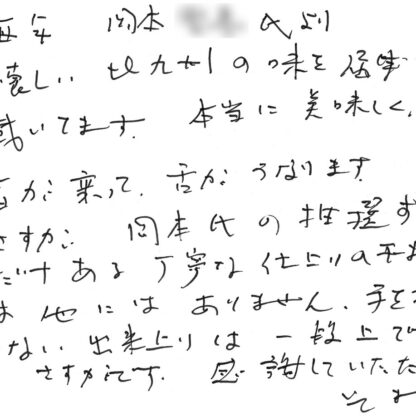 毎年 岡本 氏より
懐しい 北九州の味を届け
戴いてます. 本当に美味しく,
が乗って. 舌が うなります
さすが. 岡本氏の推選す
だけある 丁寧な仕上りの
は他には ありません. 手を
ない 出来上りは 一段上で
さすがです. 感謝していただ